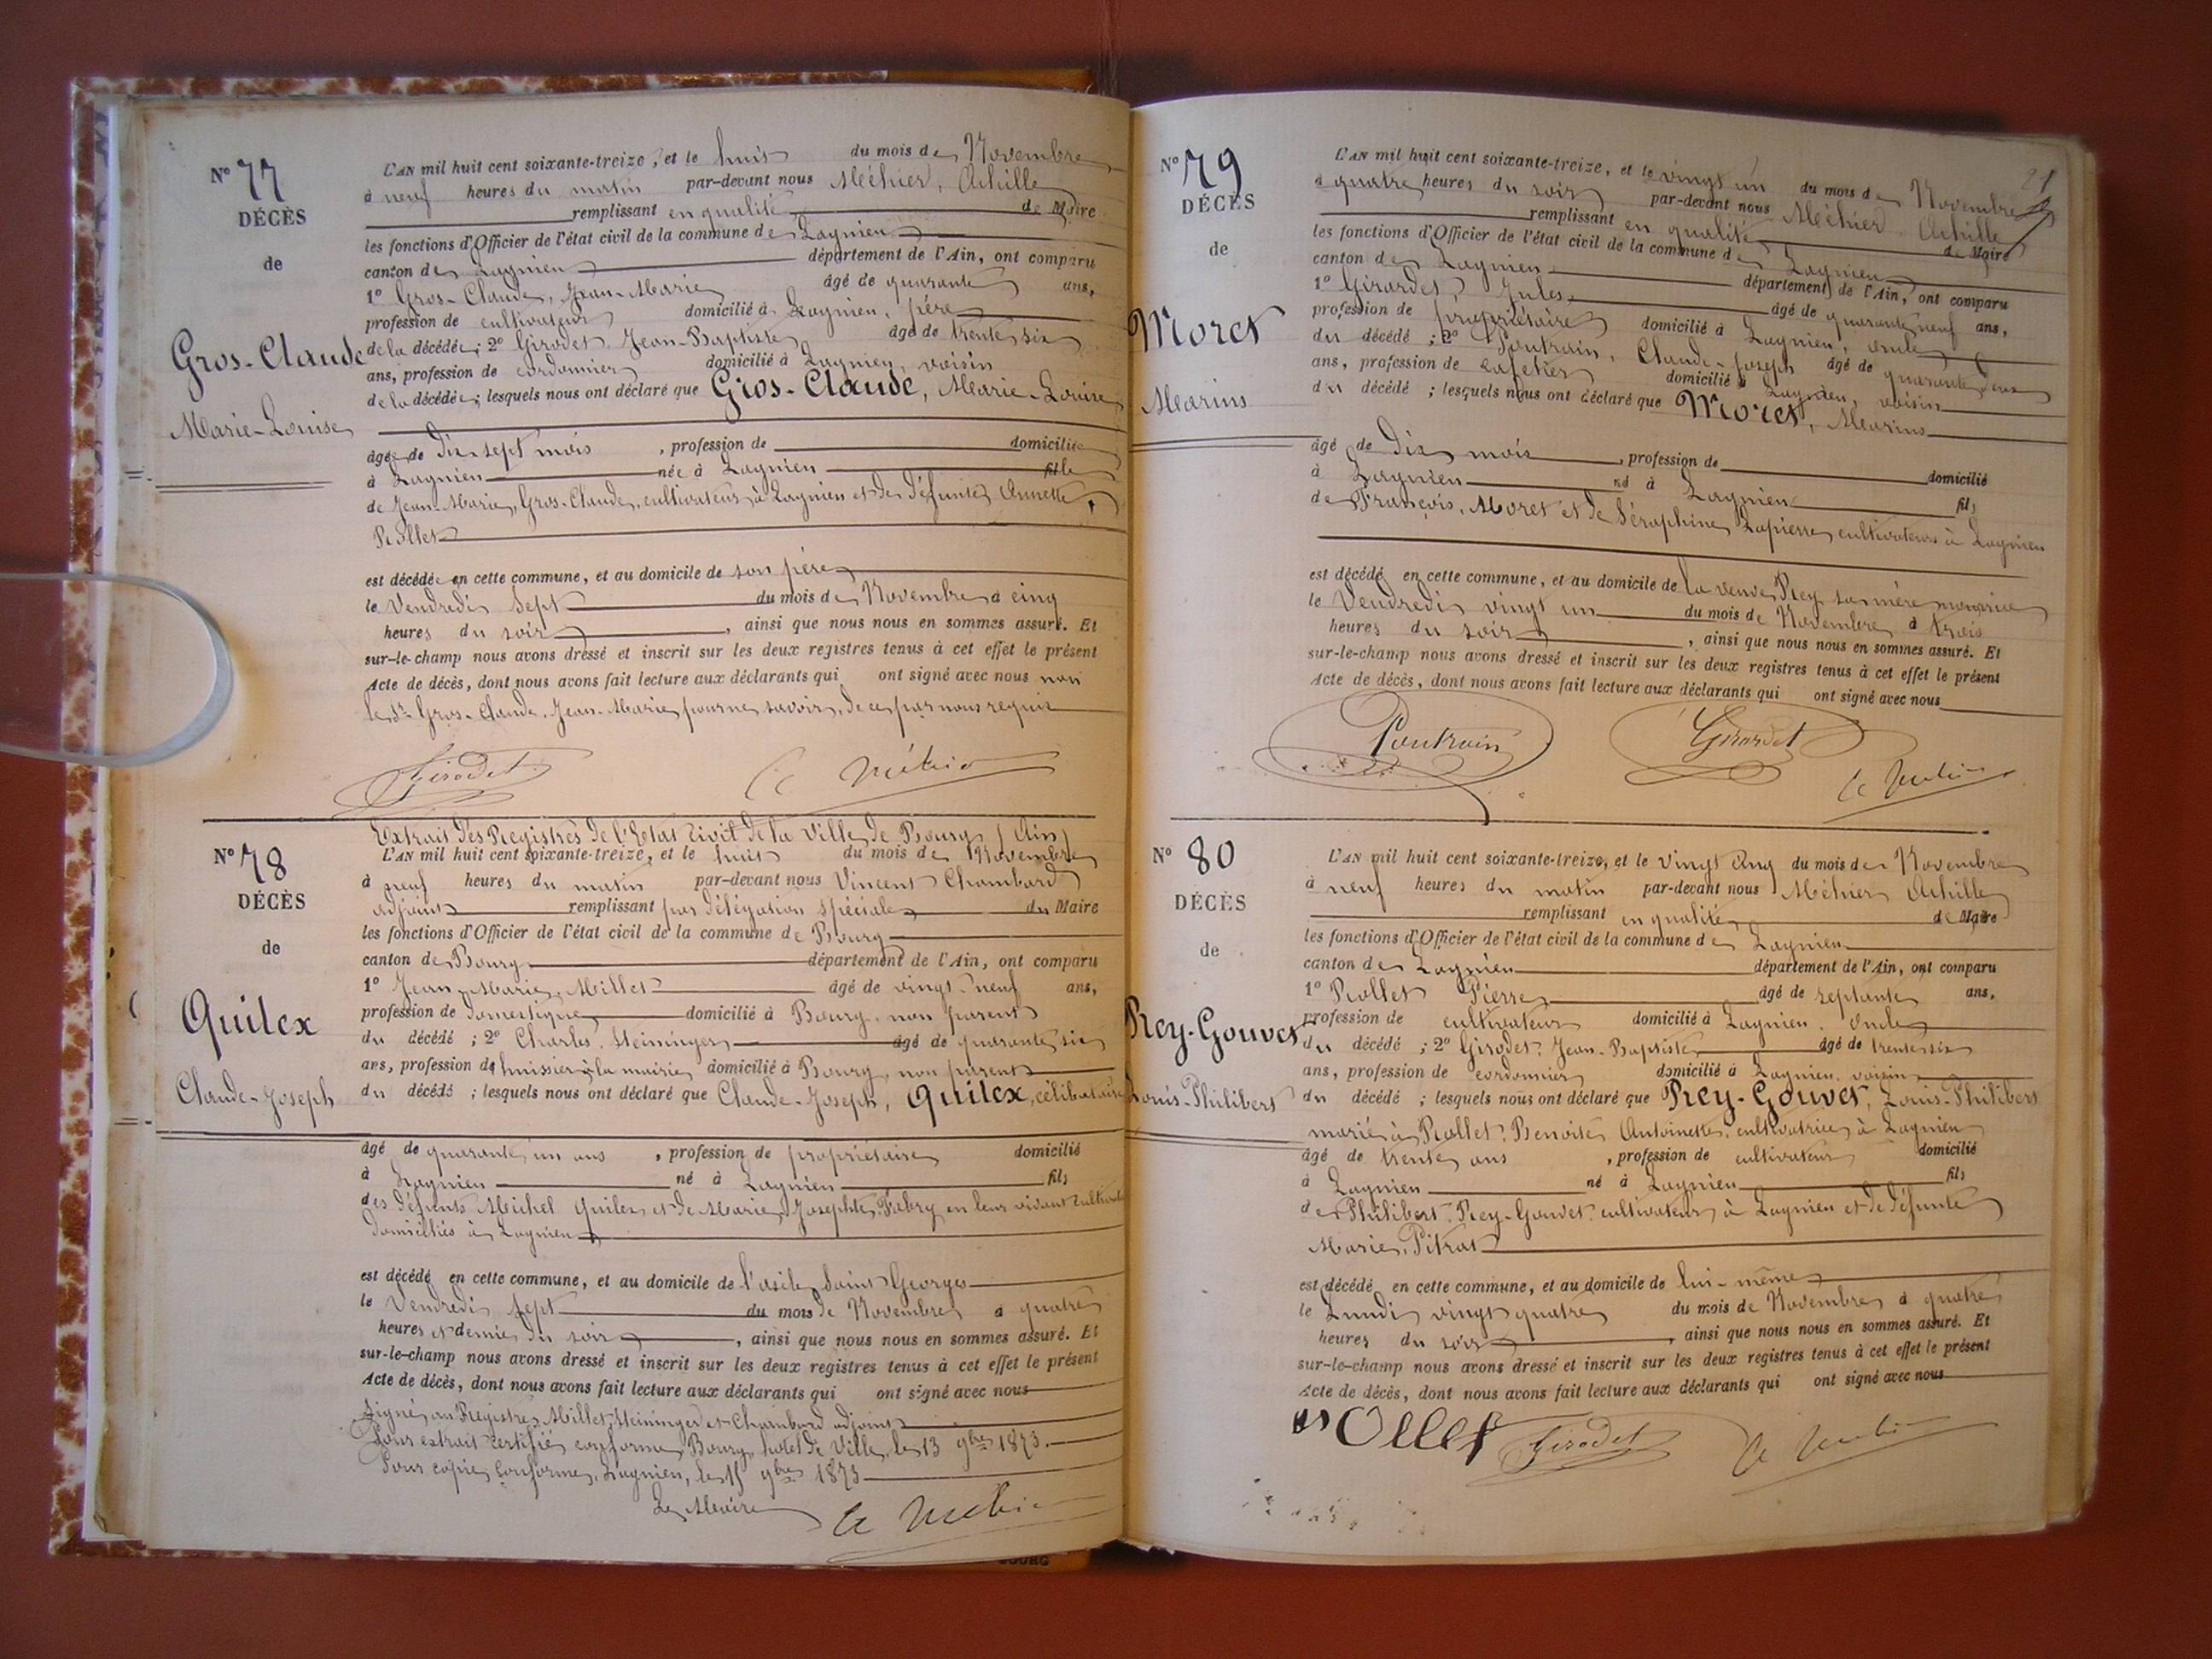 N° 77
DÉCÈS
de
Gros-Claude
Marie-Louise
L'AN mil huit cent soixante-treize, et le huit du mois de Novembre
à neuf heures du matin par-devant nous Méhier, Achille
remplissant en qualité de Maire
les fonctions d'Officier de l'état civil de la commune de Lagnieu
canton de Lagnieu département de l'Ain, ont comparu
1° Gros-Claude, Jean-Marie âgé de quarante ans,
profession de cultivateur domicilié à Lagnieu, père
de la décédée ; 2° Girodet, Jean-Baptiste âgé de trente six
ans, profession de cordonnier domicilié à Lagnieu, voisin
de la décédée ; lesquels nous ont déclaré que Gros-Claude, Marie-Louise
âgée de dix-sept mois , profession de domiciliée
à Lagnieu née à Lagnieu fille
de Jean-Marie, Gros-Claude, cultivateur à Lagnieu et de défunte Annette
Rollet
est décédée en cette commune, et au domicile de son père
le Vendredi sept du mois de Novembre à cinq
heures du soir , ainsi que nous nous en sommes assuré. Et
sur-le-champ nous avons dressé et inscrit sur les deux registres tenus à cet effet le présent
Acte de décès, dont nous avons fait lecture aux déclarants qui ont signé avec nous non
le sr Gros-Claude, Jean-Marie pour ne savoir, de ce par nous requis
Girodet A Méhier
N° 78
DÉCÈS
de
Quilex
Claude-Joseph
Extrait des Registres de l'Etat civil de la Ville de Bourg (Ain)
L'AN mil huit cent soixante-treize, et le huit du mois de Novembre
à neuf heures du matin par-devant nous Vincent Chambard
adjoint remplissant par délégation spéciale du Maire
les fonctions d'Officier de l'état civil de la commune de Bourg
canton de Bourg département de l'Ain, ont comparu
1° Jean-Marie, Millet âgé de vingt-neuf ans,
profession de domestique domicilié à Bourg, non parent
du décédé ; 2° Charles, Steininger âgé de quarante six
ans, profession de huissier à la mairie domicilié à Bourg, non parent
du décédé ; lesquels nous ont déclaré que Claude-Joseph, Quilex, célibataire
âgé de quarante un ans , profession de propriétaire domicilié
à Lagnieu né à Lagnieu fils
des défunts Michel Quilex et de Marie, Josephte, Fabry en leur vivant
domiciliés à Lagnieu
est décédé en cette commune, et au domicile de l'asile Saint Georges
le Vendredi sept du mois de Novembre à quatre
heures et demie du soir , ainsi que nous nous en sommes assuré. Et
sur-le-champ nous avons dressé et inscrit sur les deux registres tenus à cet effet le présent
Acte de décès, dont nous avons fait lecture aux déclarants qui ont signé avec nous
Signé au Registre, Millet, Steininger et Chambard adjoint
Pour extrait certifié conforme, Bourg, hotel de Ville, le 13 9bre 1873.
Pour copie conforme, Lagnieu, le 15 9bre 1873
Le Maire A Méhier
N° 79
DÉCÈS
de
Moret
Marius
21
L'AN mil huit cent soixante-treize, et le vingt un du mois de Novembre
à quatre heures du soir par-devant nous Méhier Achille
remplissant en qualité de Maire
les fonctions d'Officier de l'état civil de la commune de Lagnieu
canton de Lagnieu département de l'Ain, ont comparu
1° Girardet, Jules âgé de quarante neuf ans,
profession de propriétaire domicilié à Lagnieu, oncle
du décédé ; 2° Poutrain, Claude-Joseph âgé de quarante deux
ans, profession de cafetier domicilié à Lagnieu, voisin
du décédé ; lesquels nous ont déclaré que Moret, Marius
âgé de dix mois , profession de domicilié
à Lagnieu né à Lagnieu fils
de François, Moret et de Séraphine, Lapierre, cultivateurs à Lagnieu
est décédé en cette commune, et au domicile de la veuve Rey sa mère nourrice
le Vendredi vingt un du mois de Novembre à trois
heures du soir , ainsi que nous nous en sommes assuré. Et
sur-le-champ nous avons dressé et inscrit sur les deux registres tenus à cet effet le présent
Acte de décès, dont nous avons fait lecture aux déclarants qui ont signé avec nous
Poutrain Girardet A Méhier
N° 80
DÉCÈS
de
Rey-Gouvet
Louis-Philibert
L'AN mil huit cent soixante-treize, et le vingt cinq du mois de Novembre
à neuf heures du matin par-devant nous Méhier Achille
remplissant en qualité de Maire
les fonctions d'Officier de l'état civil de la commune de Lagnieu
canton de Lagnieu département de l'Ain, ont comparu
1° Rollet Pierre âgé de septante ans,
profession de cultivateur domicilié à Lagnieu, Oncle
du décédé ; 2° Girodet, Jean-Baptiste âgé de trente six
ans, profession de cordonnier domicilié à Lagnieu, voisin
du décédé ; lesquels nous ont déclaré que Rey-Gouvet, Louis-Philibert
marié à Rollet, Benoite, Antoinette, cultivatrice à Lagnieu
âgé de trente ans , profession de cultivateur domicilié
à Lagnieu né à Lagnieu fils
de Philibert, Rey-Gouvet, cultivateur à Lagnieu et de défunte
Marie, Pitrat
est décédé en cette commune, et au domicile de lui-même
le Lundi vingt quatre du mois de Novembre à quatre
heures du soir , ainsi que nous nous en sommes assuré. Et
sur-le-champ nous avons dressé et inscrit sur les deux registres tenus à cet effet le présent
Acte de décès, dont nous avons fait lecture aux déclarants qui ont signé avec nous
rOllet Girodet A Méhier
BOURG